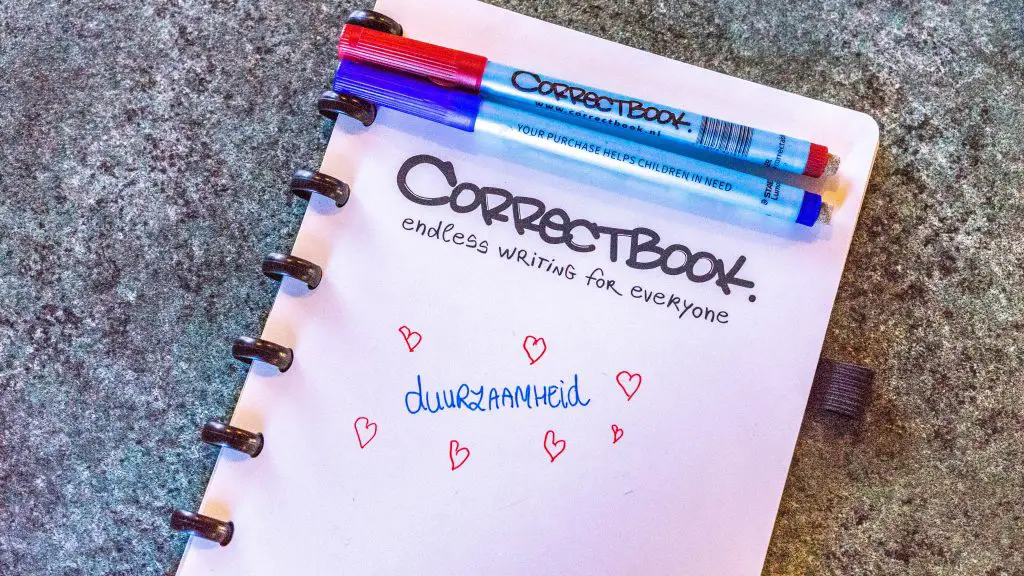 CORRECTBOOK.
www.correctbook.nl
YOUR PURCHASE HELPS CHILDREN IN NEED
CORRECTBOOK.
endless WRITING for everyone
duuRZAAMHEid